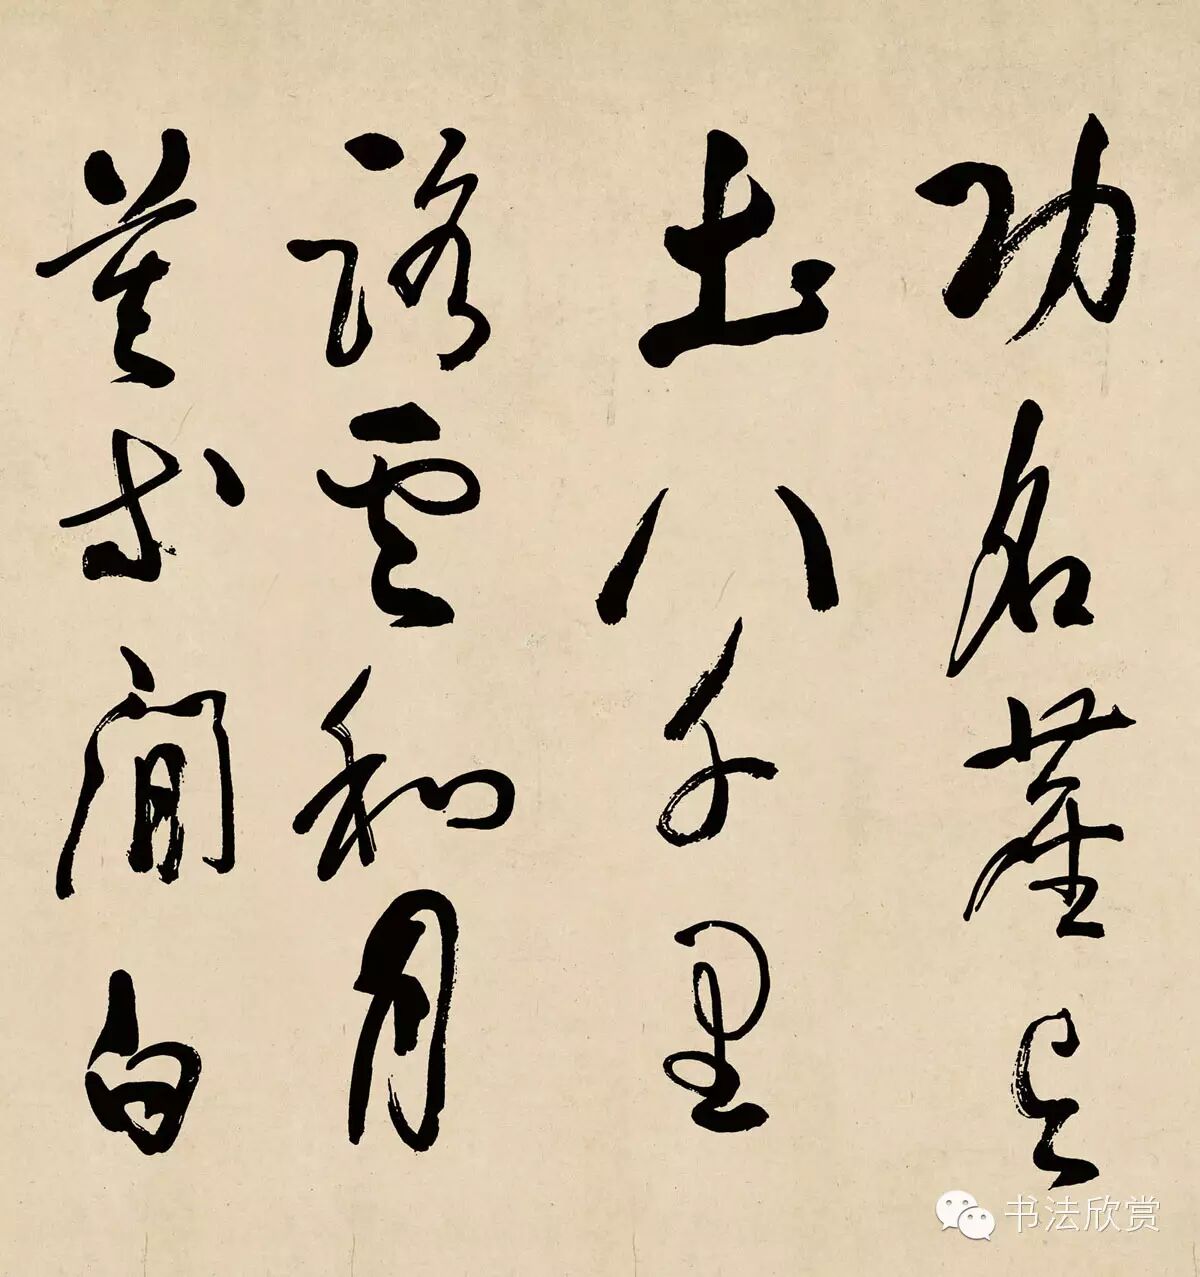 功名塵與
土八千里
路雲和月
莫等閒白
书法欣赏